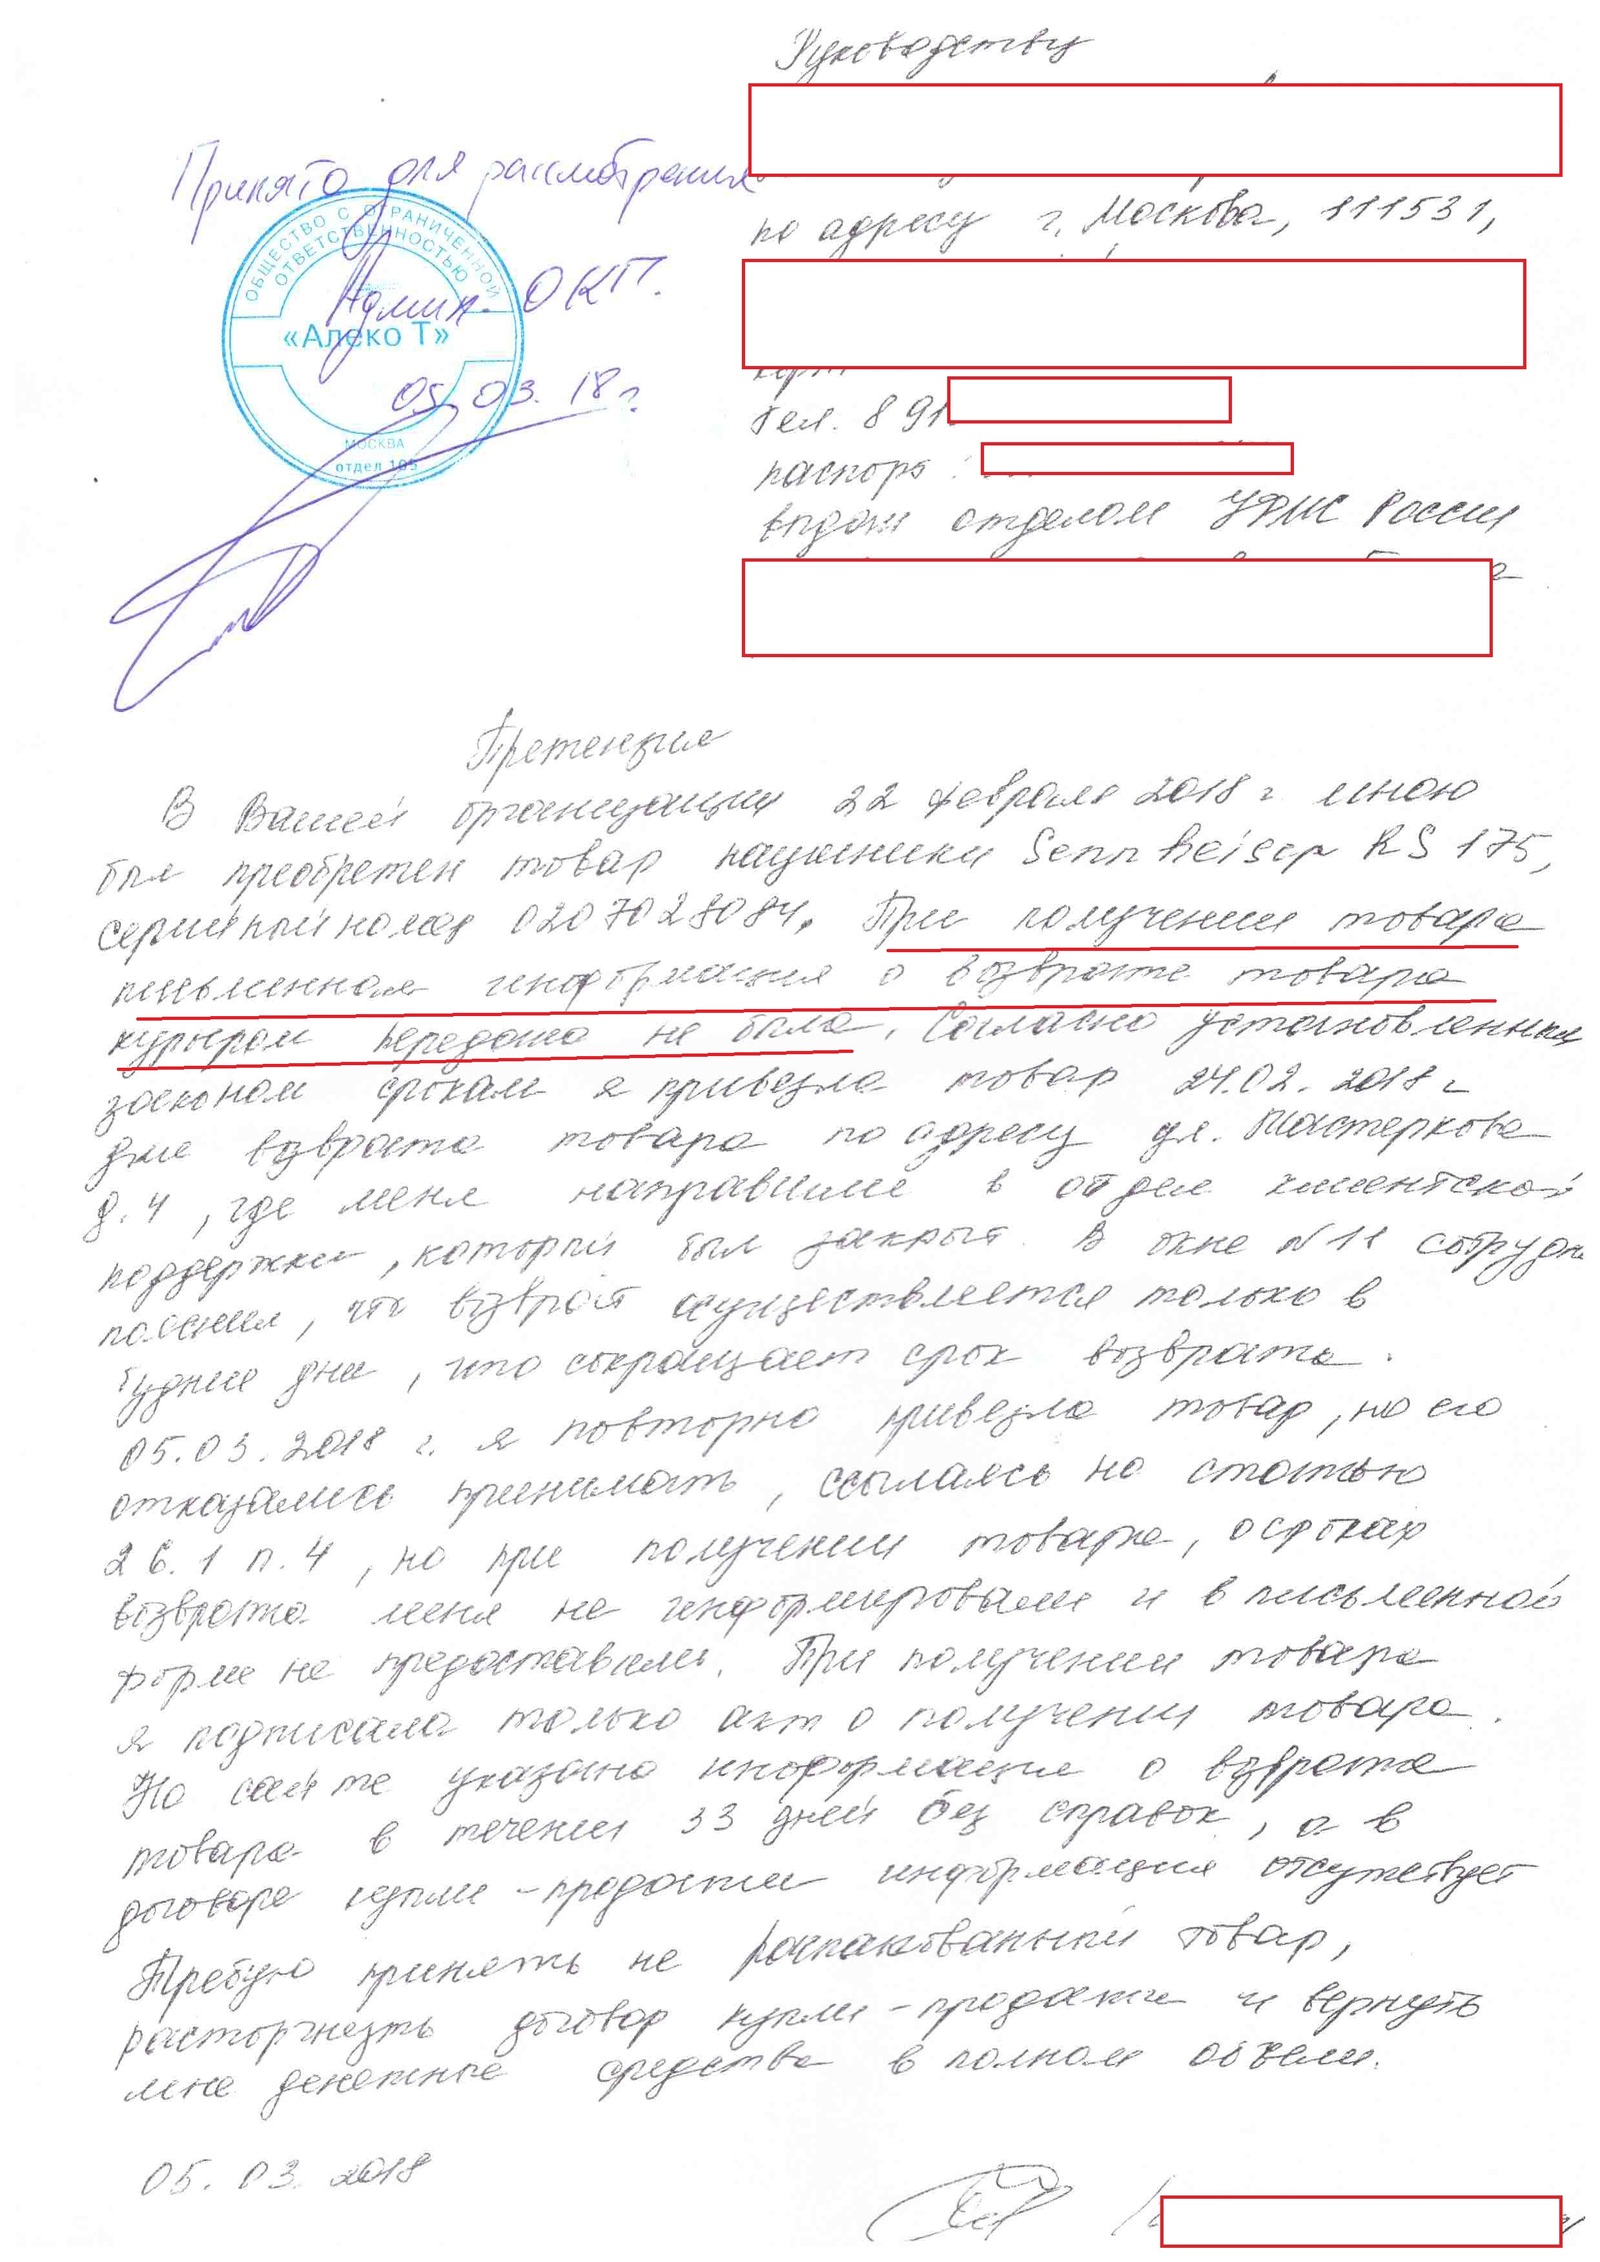 Руководству
по адресу г. Москва, 111531,
тел. 8 91
паспорт
выдан отделом УФМС России
Принято для рассмотрения
ОБЩЕСТВО С ОГРАНИЧЕННОЙ
ОТВЕТСТВЕННОСТЬЮ
Админ. ОКП.
«Алеко Т»
05.03.18г.
МОСКВА
отдел 105
Претензия
В Вашей организации 22 февраля 2018 г мною
был преобретен товар наушники Sennheiser RS 175,
серийный номер 0207028084. При получении товара
письменная информация о возврате товара
курьером передана не была. Согласно установленным
законом срокам я привезла товар 24.02.2018 г
для возврата товара по адресу ул. Мастеркова
д. 4, где меня направили в отдел клиентской
поддержки, который был закрыт. В окне №11 сотрудн
пояснил, что возврат осуществляется только в
будние дни, что сокращает срок возврата.
05.03.2018 г. я повторно привезла товар, но его
отказались принимать, ссылаясь на статью
26.1 п.4, но при получении товара, о сроках
возврата меня не информировали и в письменной
форме не предоставили. При получении товара
я подписала только акт о получении товара.
На сайте указана информация о возврате
товара в течении 33 дней без справок, а в
договоре купли-продажи информация отсутствует
Требую принять не распакованный товар,
расторгнуть договор купли-продажи и вернуть
мне денежные средства в полном объеме.
05.03.2018